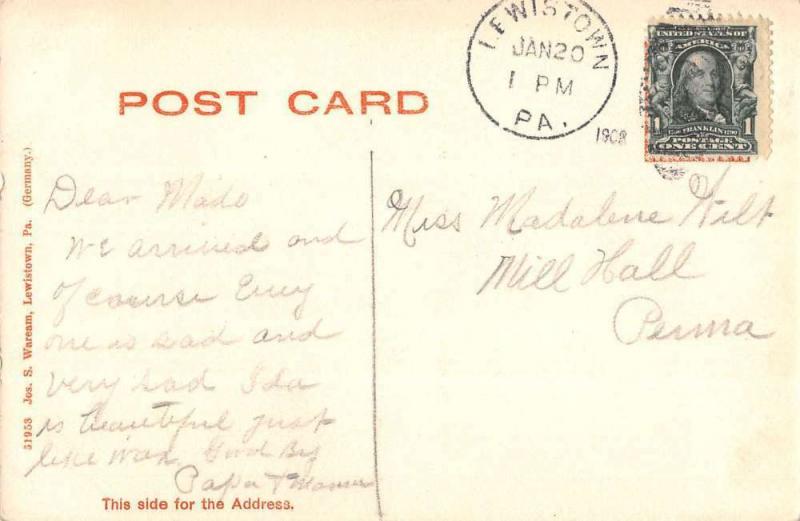 LEWISTOWN
JAN 20
1 PM
PA.
1908
UNITED STATES OF
AMERICA
1 FRANKLIN 1
POSTAGE
ONE CENT
POST CARD
51953 Jos. S. Waream, Lewistown, Pa. (Germany.)
Dear Mado
We arrived and
of course Every
one is sad and
very sad Ida
is beautiful just
like wax. Good By
Papa & Mamma
Miss Madalene Wilt
Mill Hall
Penna
This side for the Address.